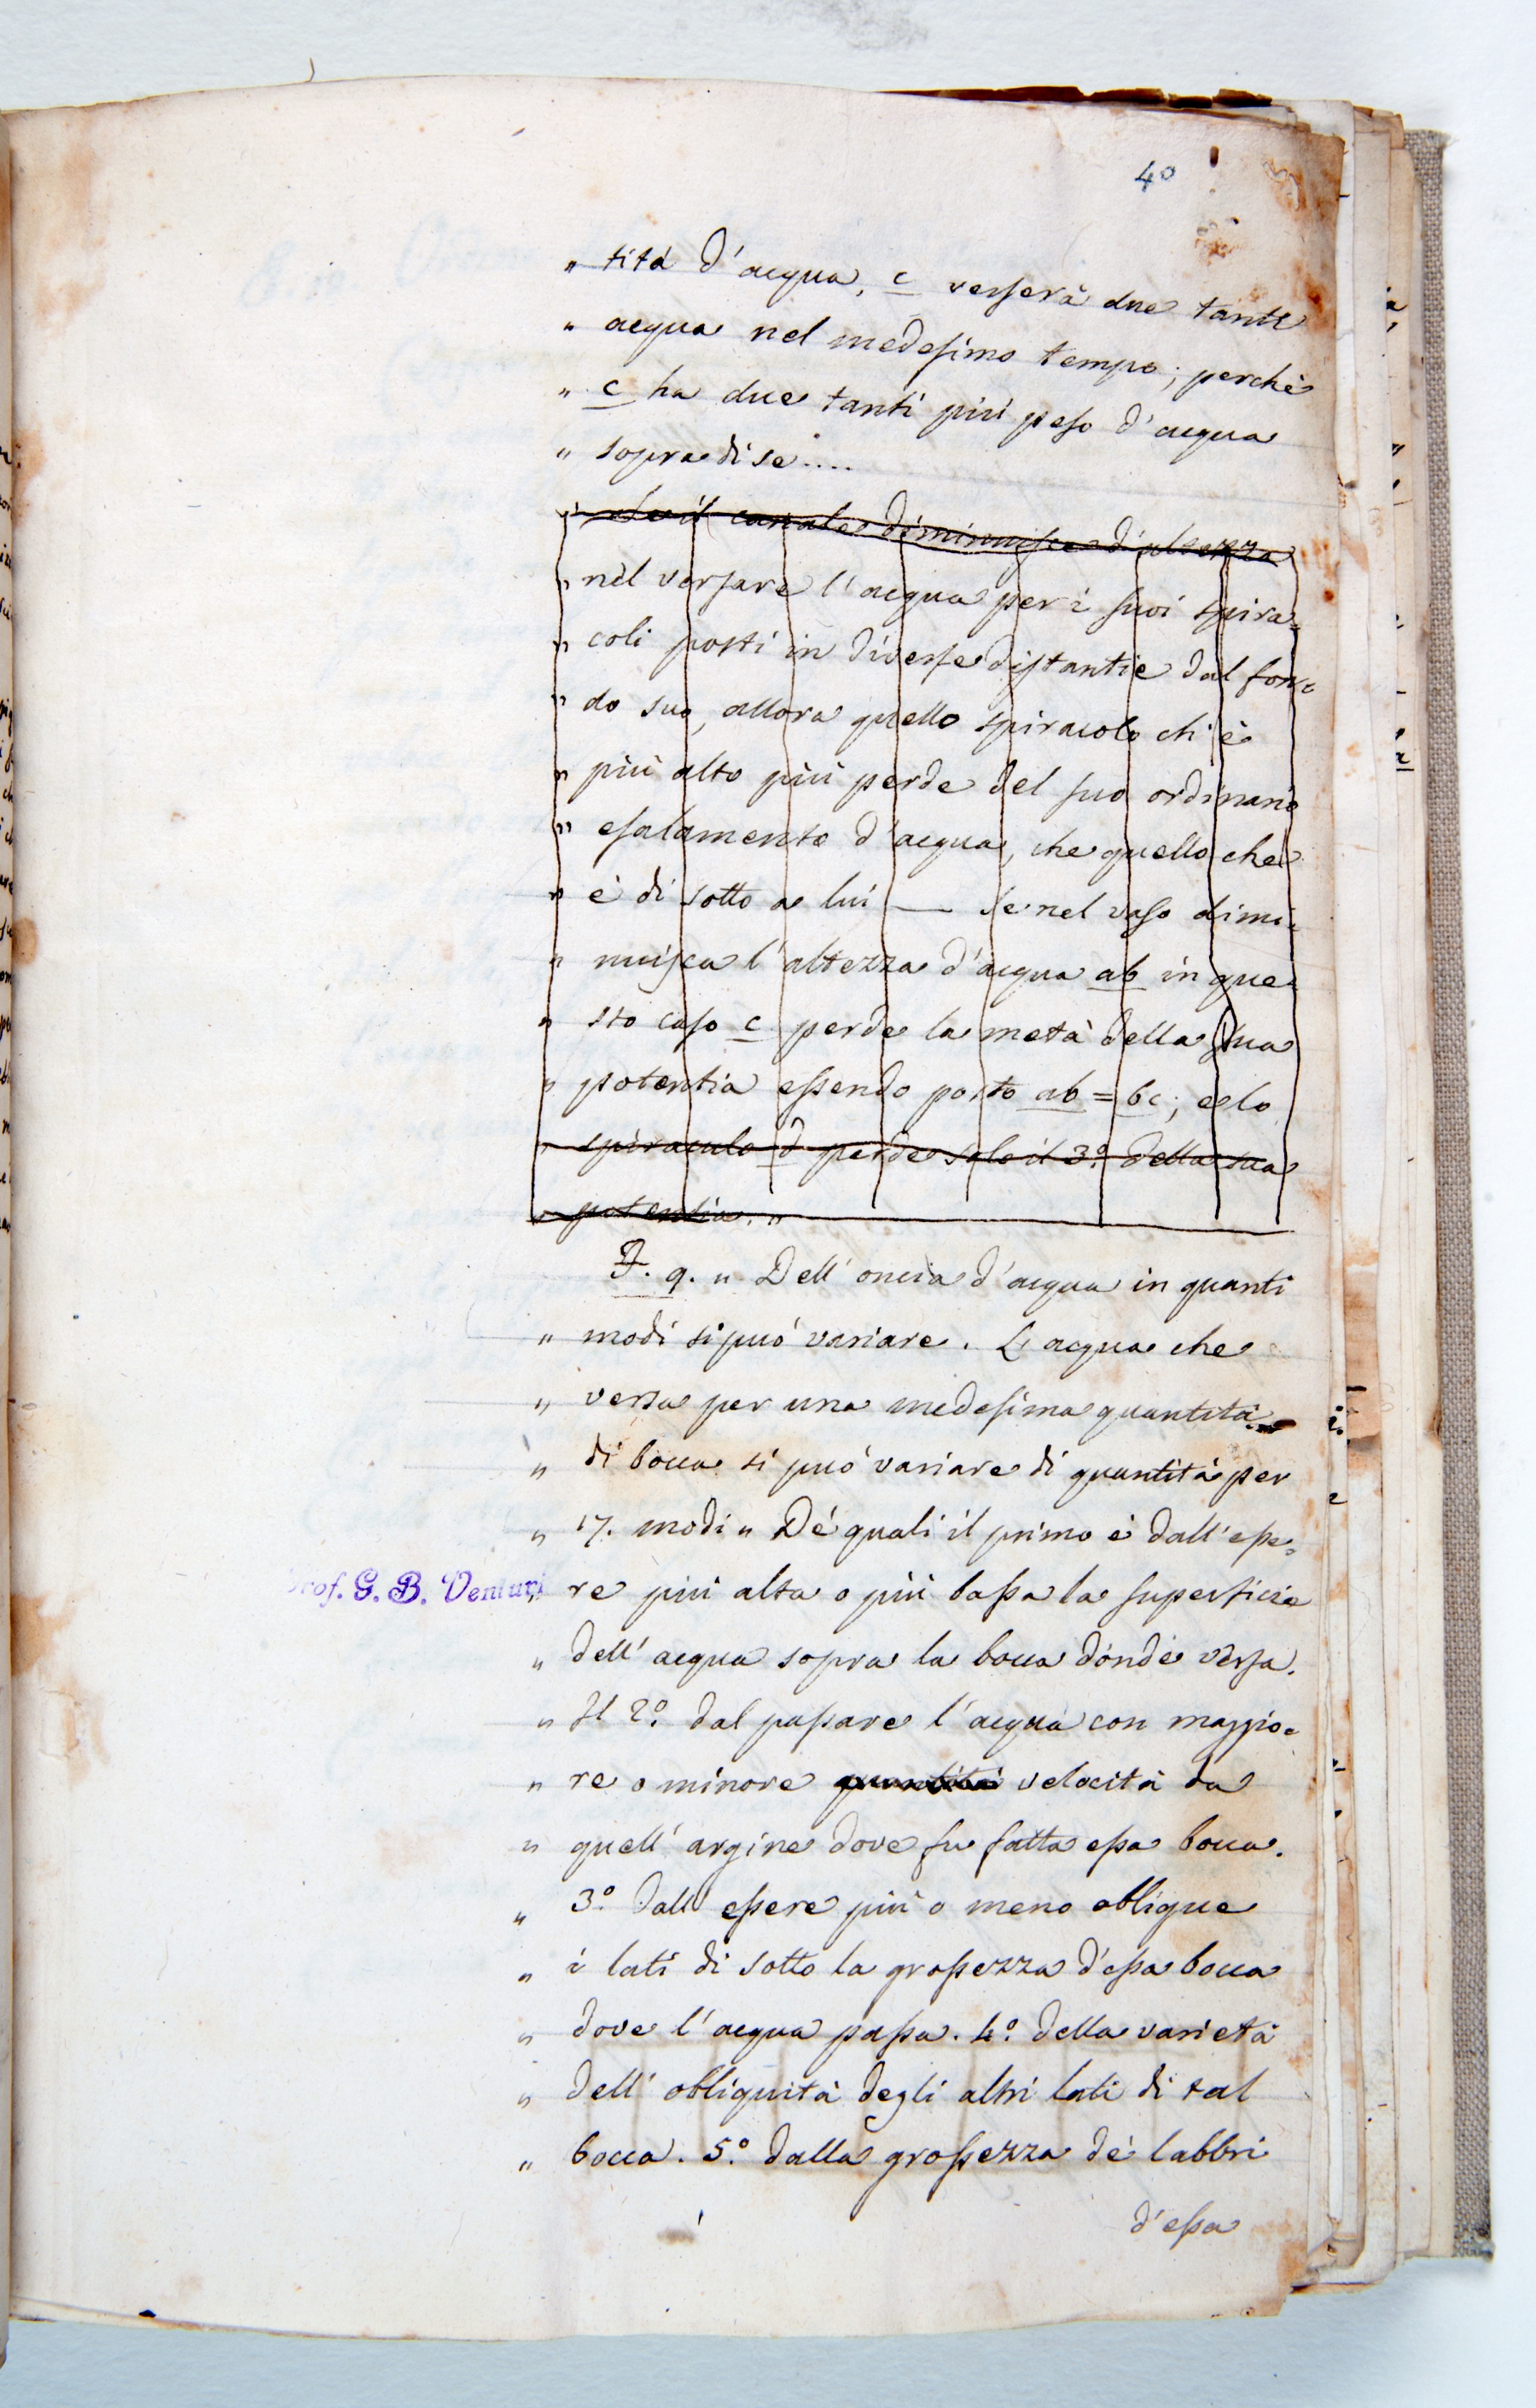 40
„ titá d'acqua, c verserà due tanti
„ acqua nel medesimo tempo; perchè
„ c ha due tanti più peso d'acqua
„ sopra di se....
„ Se il canale diminuisce d'altezza
„ nel versare l'acqua per i suoi spira=
„ coli posti in diverse distantie dal fon=
„ do suo, allora quello spiracolo ch'è
„ più alto più perde del suo ordinario
„ esalamento d'acqua, che quello che
„ è di sotto a lui — Se nel vaso dimi=
„ nuisca l'altezza d'acqua ab in que=
„ sto caso c perde la metà della sua
„ potentia essendo posto ab = bc; e lo
„ spiraculo d perde solo il 3.º della sua
„ potentia. „
F. 9. „ Dell'oncia d'acqua in quanti
„ modi si può variare. L'acqua che
„ versa per una medesima quantità
„ di bocca si può variare di quantità per
„ 17. modi „ De' quali il primo è dall'esse=
Prof. G. B. Venturi
„ re più alta o più bassa la superficie
„ dell'acqua sopra la bocca donde versa.
„ Il 2.º dal passare l'acqua con maggio=
„ re o minore quantità velocità da
„ quell'argine dove fu fatta essa bocca.
„ 3.º dall'essere più o meno oblique
„ i lati di sotto la grossezza d'essa bocca
„ dove l'acqua passa. 4.º della varietà
„ dell'obliquità degli altri lati di tal
„ bocca. 5.º dalla grossezza de' labbri
d'essa